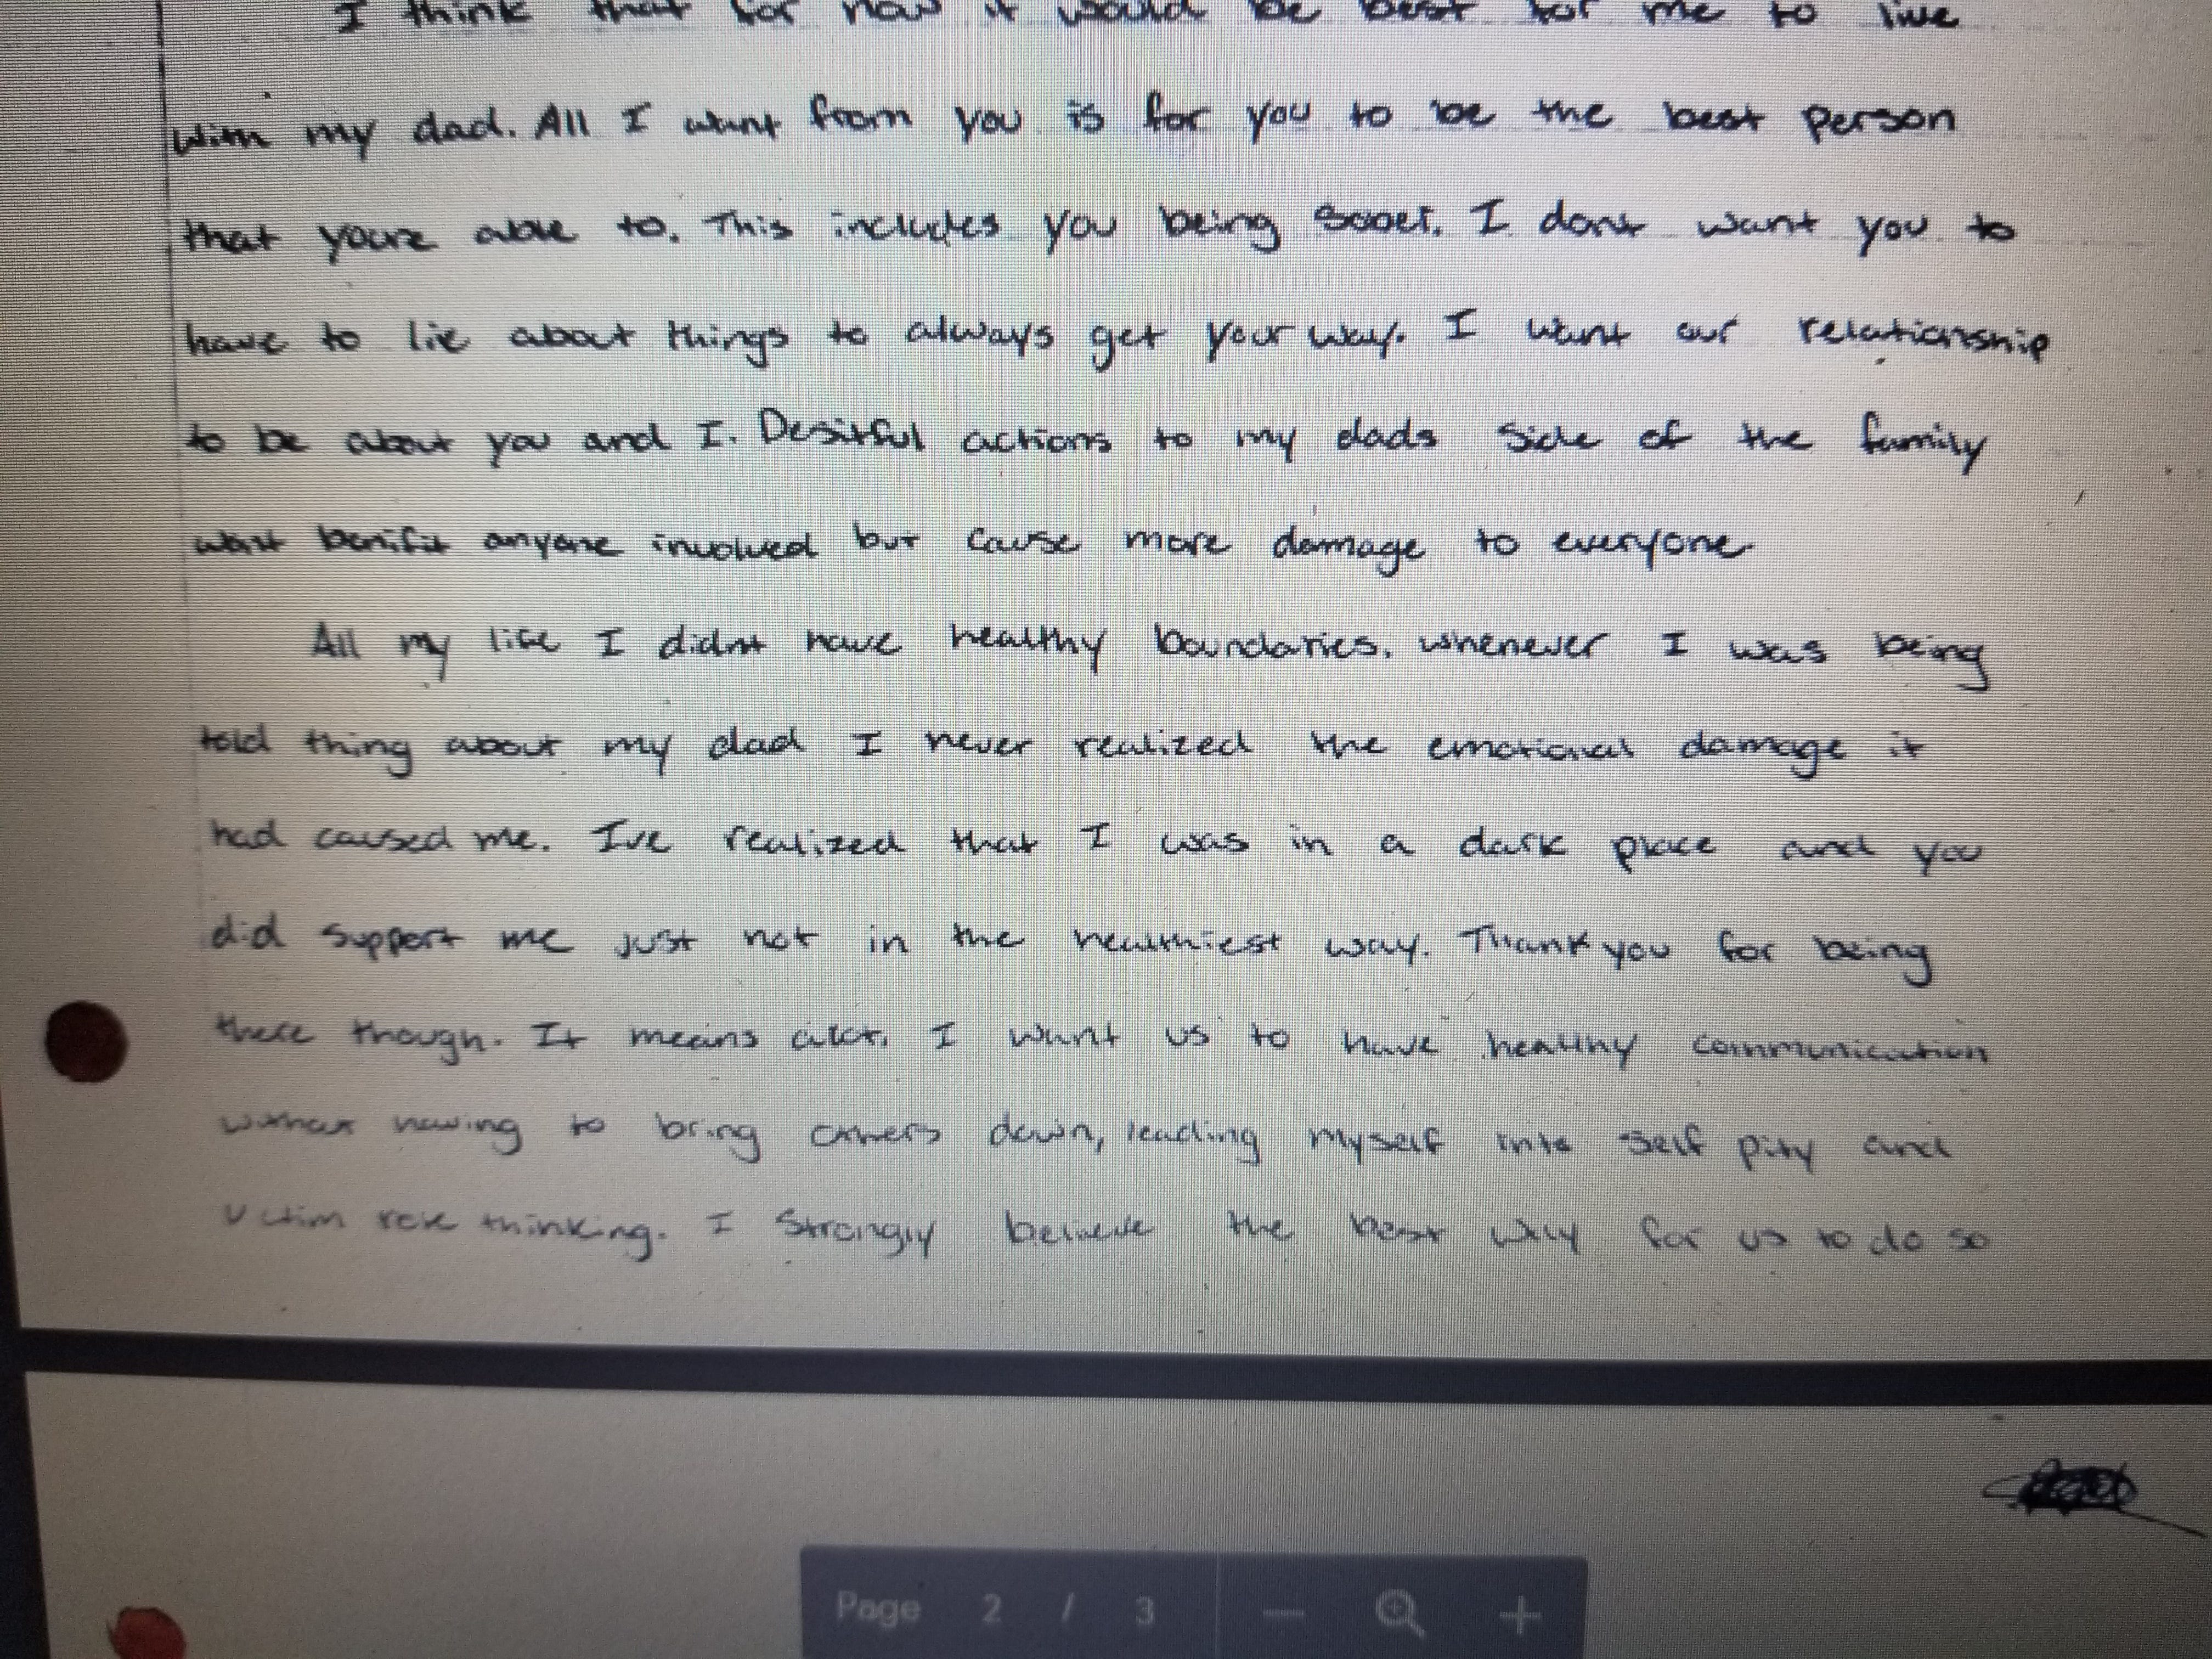 I think that for now it would be best for me to live
with my dad. All I want from you is for you to be the best person
that youre able to. This includes you being sober. I dont want you to
have to lie about things to always get your way. I want our relationship
to be about you and I. Desitful actions to my dads side of the family
wont benifit anyone involved but cause more damage to everyone
All my life I didnt have healthy boundaries. whenever I was being
told thing about my dad I never realized the emotional damage it
had caused me. Ive realized that I was in a dark place and you
did support me just not in the healthiest way. Thank you for being
there though. It means alot. I want us to have healthy communication
without having to bring others down, leading myself into self pity and
victim role thinking. I strongly believe the best way for us to do so
Page 2 / 3